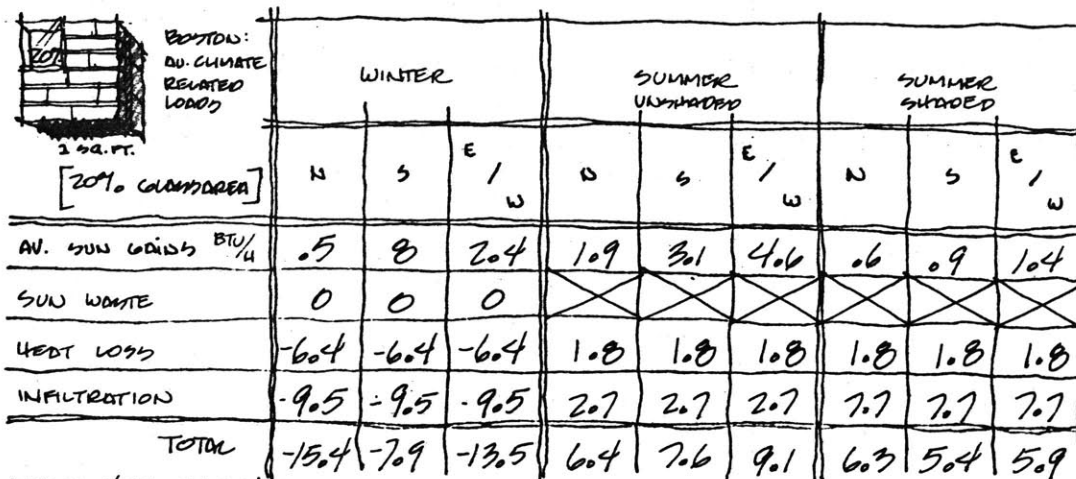 20%
BOSTON:
AV. CLIMATE
RELATED
LOADS
1 SQ. FT.
[20% GLASS AREA]
WINTER
SUMMER
UNSHADED
SUMMER
SHADED
N S E/W N S E/W N S E/W
AV. SUN GAINS BTU/H .5 8 2.4 1.9 3.1 4.6 .6 .9 1.4
SUN WASTE 0 0 0
HEAT LOSS -6.4 -6.4 -6.4 1.8 1.8 1.8 1.8 1.8 1.8
INFILTRATION -9.5 -9.5 -9.5 2.7 2.7 2.7 2.7 2.7 2.7
TOTAL -15.4 -7.9 -13.5 6.4 7.6 9.1 6.3 5.4 5.9